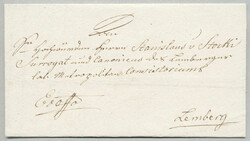 Dem
Hochwürden Herrn Stanislaus v
Surrogat und Canonicus des Lemberger
lat: Metropolitan Consistoriums
Ex offo
Lemberg